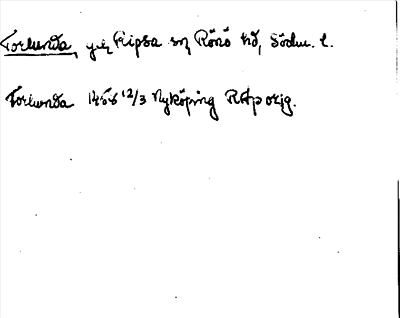 Torlunda, gd, Ripsa sn, Rönö hd, Södm. l.
Torlunda 1458 12/3 Nyköping RAp orig.